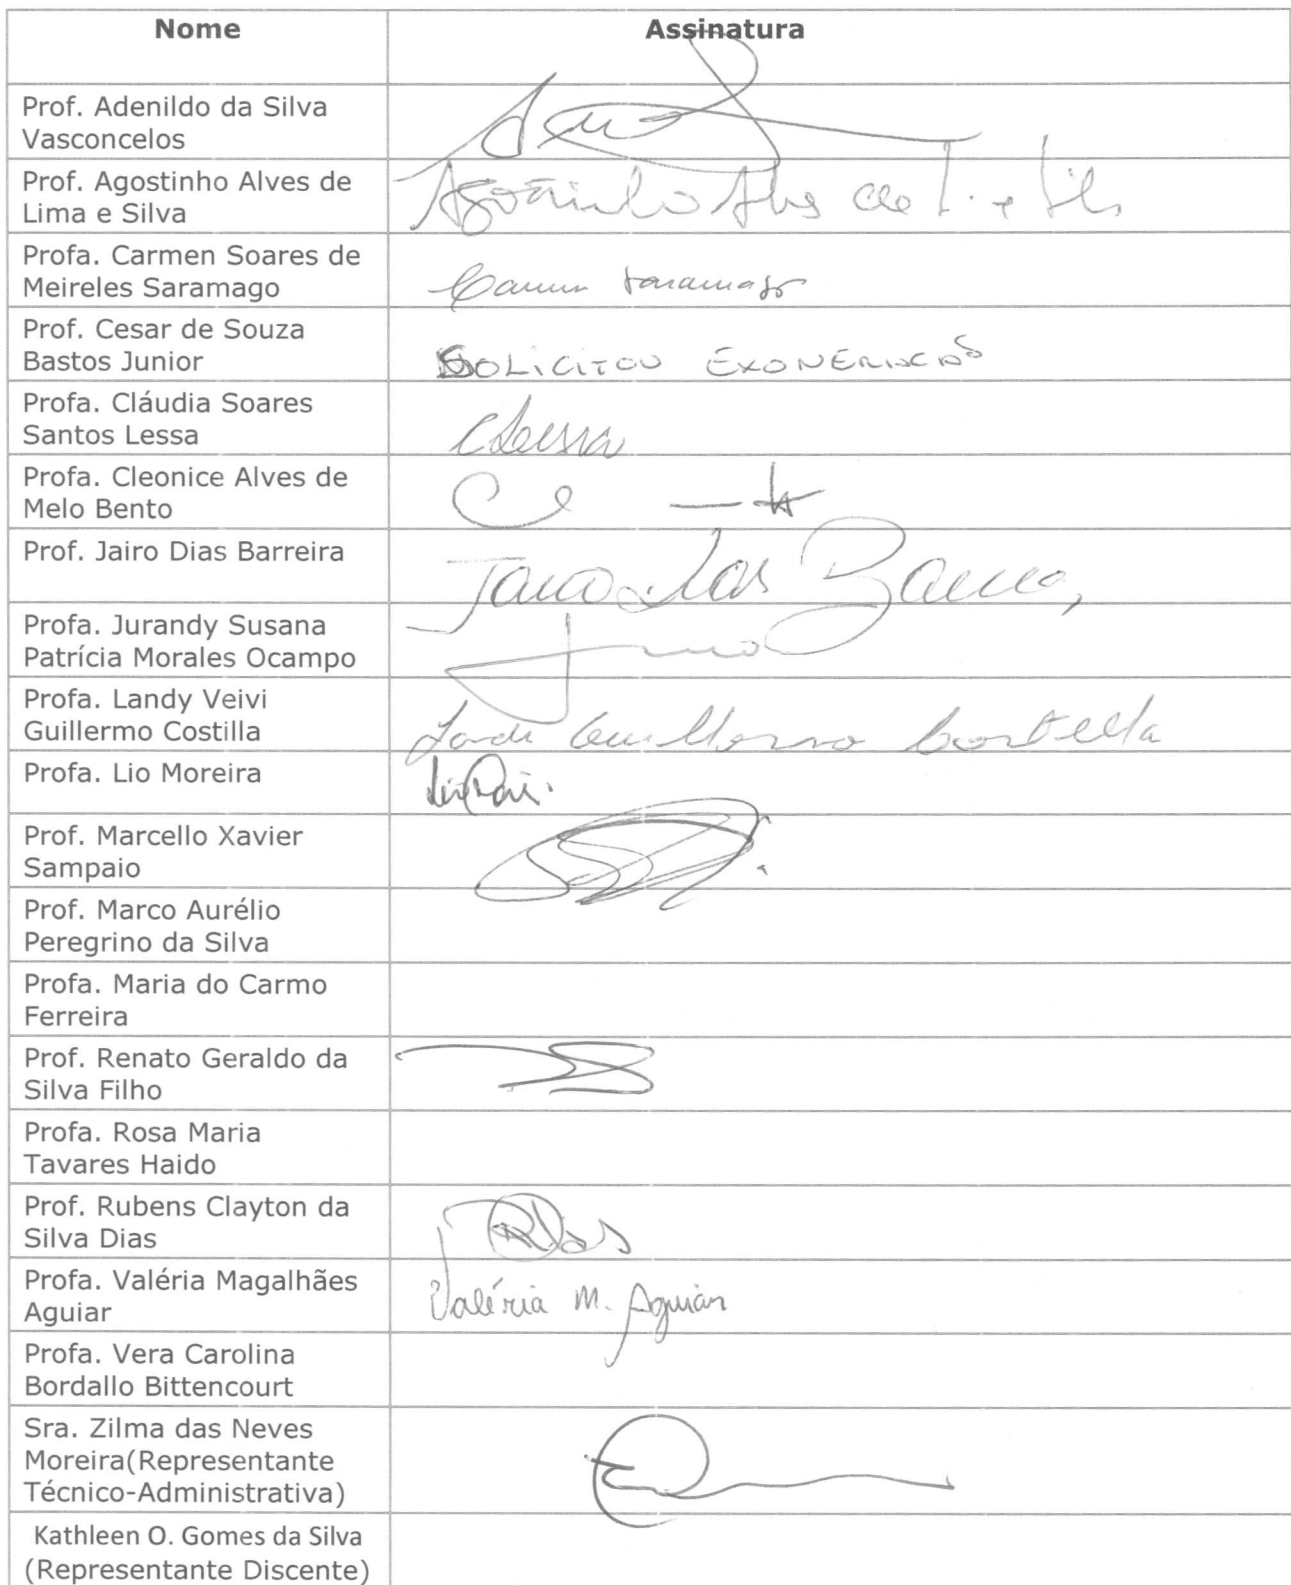 Nome Assinatura
Prof. Adenildo da Silva
Vasconcelos
Prof. Agostinho Alves de
Lima e Silva
Agostinho Alves de L. e Silva
Profa. Carmen Soares de
Meireles Saramago
Carmen Saramago
Prof. Cesar de Souza
Bastos Junior
SOLICITOU EXONERACAO
Profa. Cláudia Soares
Santos Lessa
CLessa
Profa. Cleonice Alves de
Melo Bento
Prof. Jairo Dias Barreira
Profa. Jurandy Susana
Patrícia Morales Ocampo
Profa. Landy Veivi
Guillermo Costilla
Guillermo Costilla
Profa. Lio Moreira
Prof. Marcello Xavier
Sampaio
Prof. Marco Aurélio
Peregrino da Silva
Profa. Maria do Carmo
Ferreira
Prof. Renato Geraldo da
Silva Filho
Profa. Rosa Maria
Tavares Haido
Prof. Rubens Clayton da
Silva Dias
Profa. Valéria Magalhães
Aguiar
Valéria M. Aguiar
Profa. Vera Carolina
Bordallo Bittencourt
Sra. Zilma das Neves
Moreira(Representante
Técnico-Administrativa)
Kathleen O. Gomes da Silva
(Representante Discente)